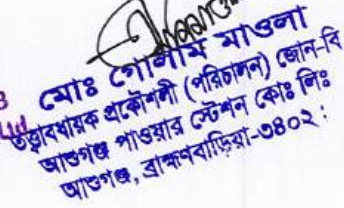 মোঃ গোলাম মাওলা
তত্ত্বাবধায়ক প্রকৌশলী (পরিচালন) জোন-বি
আশুগঞ্জ পাওয়ার স্টেশন কোঃ লিঃ
আশুগঞ্জ, ব্রাহ্মণবাড়িয়া-৩৪০২।